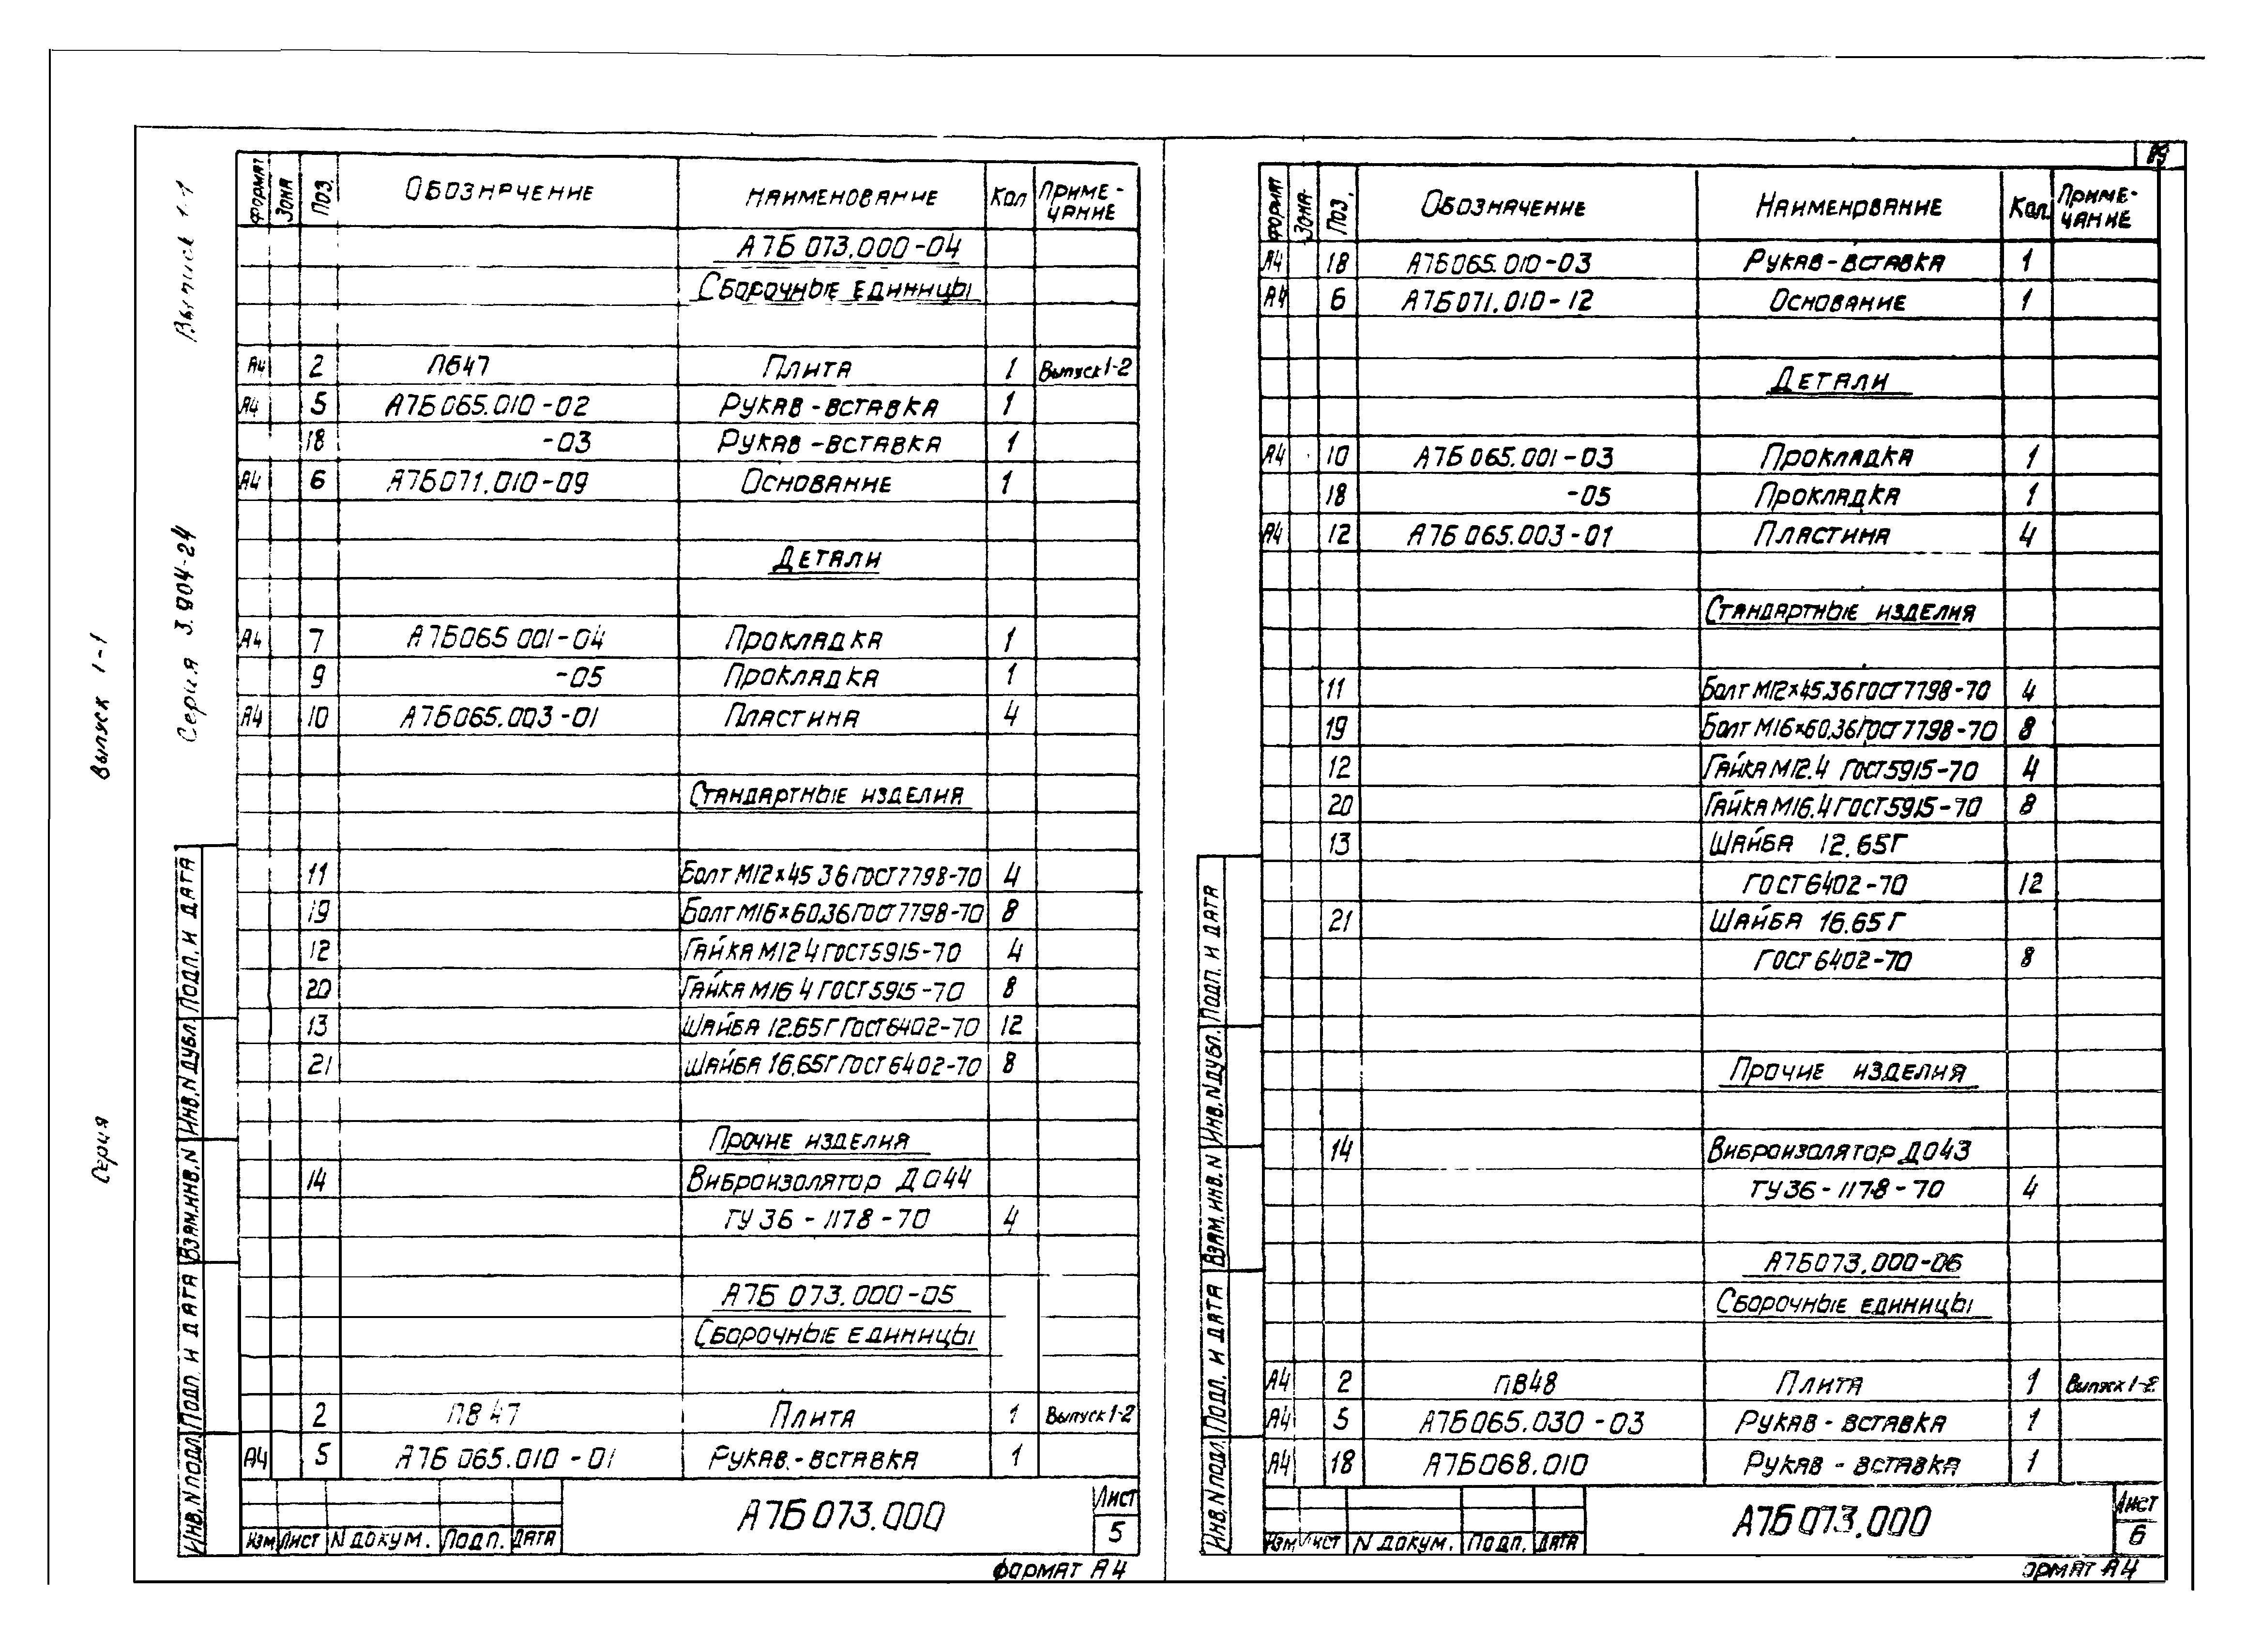 Выпуск 1-1
Серия
Выпуск 1-1
Серия 3.904-24
Формат Зона Поз. Обозначение Наименование Кол Приме-чание
А7Б 073.000-04
Сборочные единицы
А4 2 ПВ47 Плита 1 Выпуск 1-2
А4 5 А7Б065.010-02 Рукав-вставка 1
18 -03 Рукав-вставка 1
А4 6 А7Б071.010-09 Основание 1
Детали
А4 7 А7Б065 001-04 Прокладка 1
9 -05 Прокладка 1
А4 10 А7Б065.003-01 Пластина 4
Стандартные изделия
11 Болт М12×45 36 ГОСТ7798-70 4
19 Болт М16×60.36 ГОСТ7798-70 8
12 Гайка М12 4 ГОСТ5915-70 4
20 Гайка М16 4 ГОСТ5915-70 8
13 Шайба 12.65Г ГОСТ6402-70 12
21 Шайба 16.65Г ГОСТ6402-70 8
Прочие изделия
14 Виброизолятор ДО44
ТУ 36-1178-70 4
А7Б 073.000-05
Сборочные единицы
2 ПВ 47 Плита 1 Выпуск 1-2
А4 5 А7Б 065.010-01 Рукав-вставка 1
Инв.N подл. Подп. и дата Взам.инв.N Инв.N дубл. Подп. и дата
Изм Лист N докум. Подп. Дата
А7Б 073.000
Лист
5
Формат А4
89
Формат Зона Поз. Обозначение Наименование Кол. Приме-чание
А4 18 А7Б065.010-03 Рукав-вставка 1
А4 6 А7Б071.010-12 Основание 1
Детали
А4 10 А7Б 065.001-03 Прокладка 1
18 -05 Прокладка 1
А4 12 А7Б 065.003-01 Пластина 4
Стандартные изделия
11 Болт М12×45.36 ГОСТ7798-70 4
19 Болт М16×60.36 ГОСТ7798-70 8
12 Гайка М12.4 ГОСТ5915-70 4
20 Гайка М16.4 ГОСТ5915-70 8
13 Шайба 12.65Г
ГОСТ6402-70 12
21 Шайба 16.65Г
ГОСТ6402-70 8
Прочие изделия
14 Виброизолятор ДО43
ТУ36-1178-70 4
А7Б073.000-06
Сборочные единицы
А4 2 ПВ48 Плита 1 Выпуск 1-2
А4 5 А7Б065.030-03 Рукав-вставка 1
А4 18 А7Б068.010 Рукав-вставка 1
Инв.N подл. Подп. и дата Взам.инв.N Инв.N дубл. Подп. и дата
Изм Лист N докум. Подп. Дата
А7Б 073.000
Лист
6
ормат А4